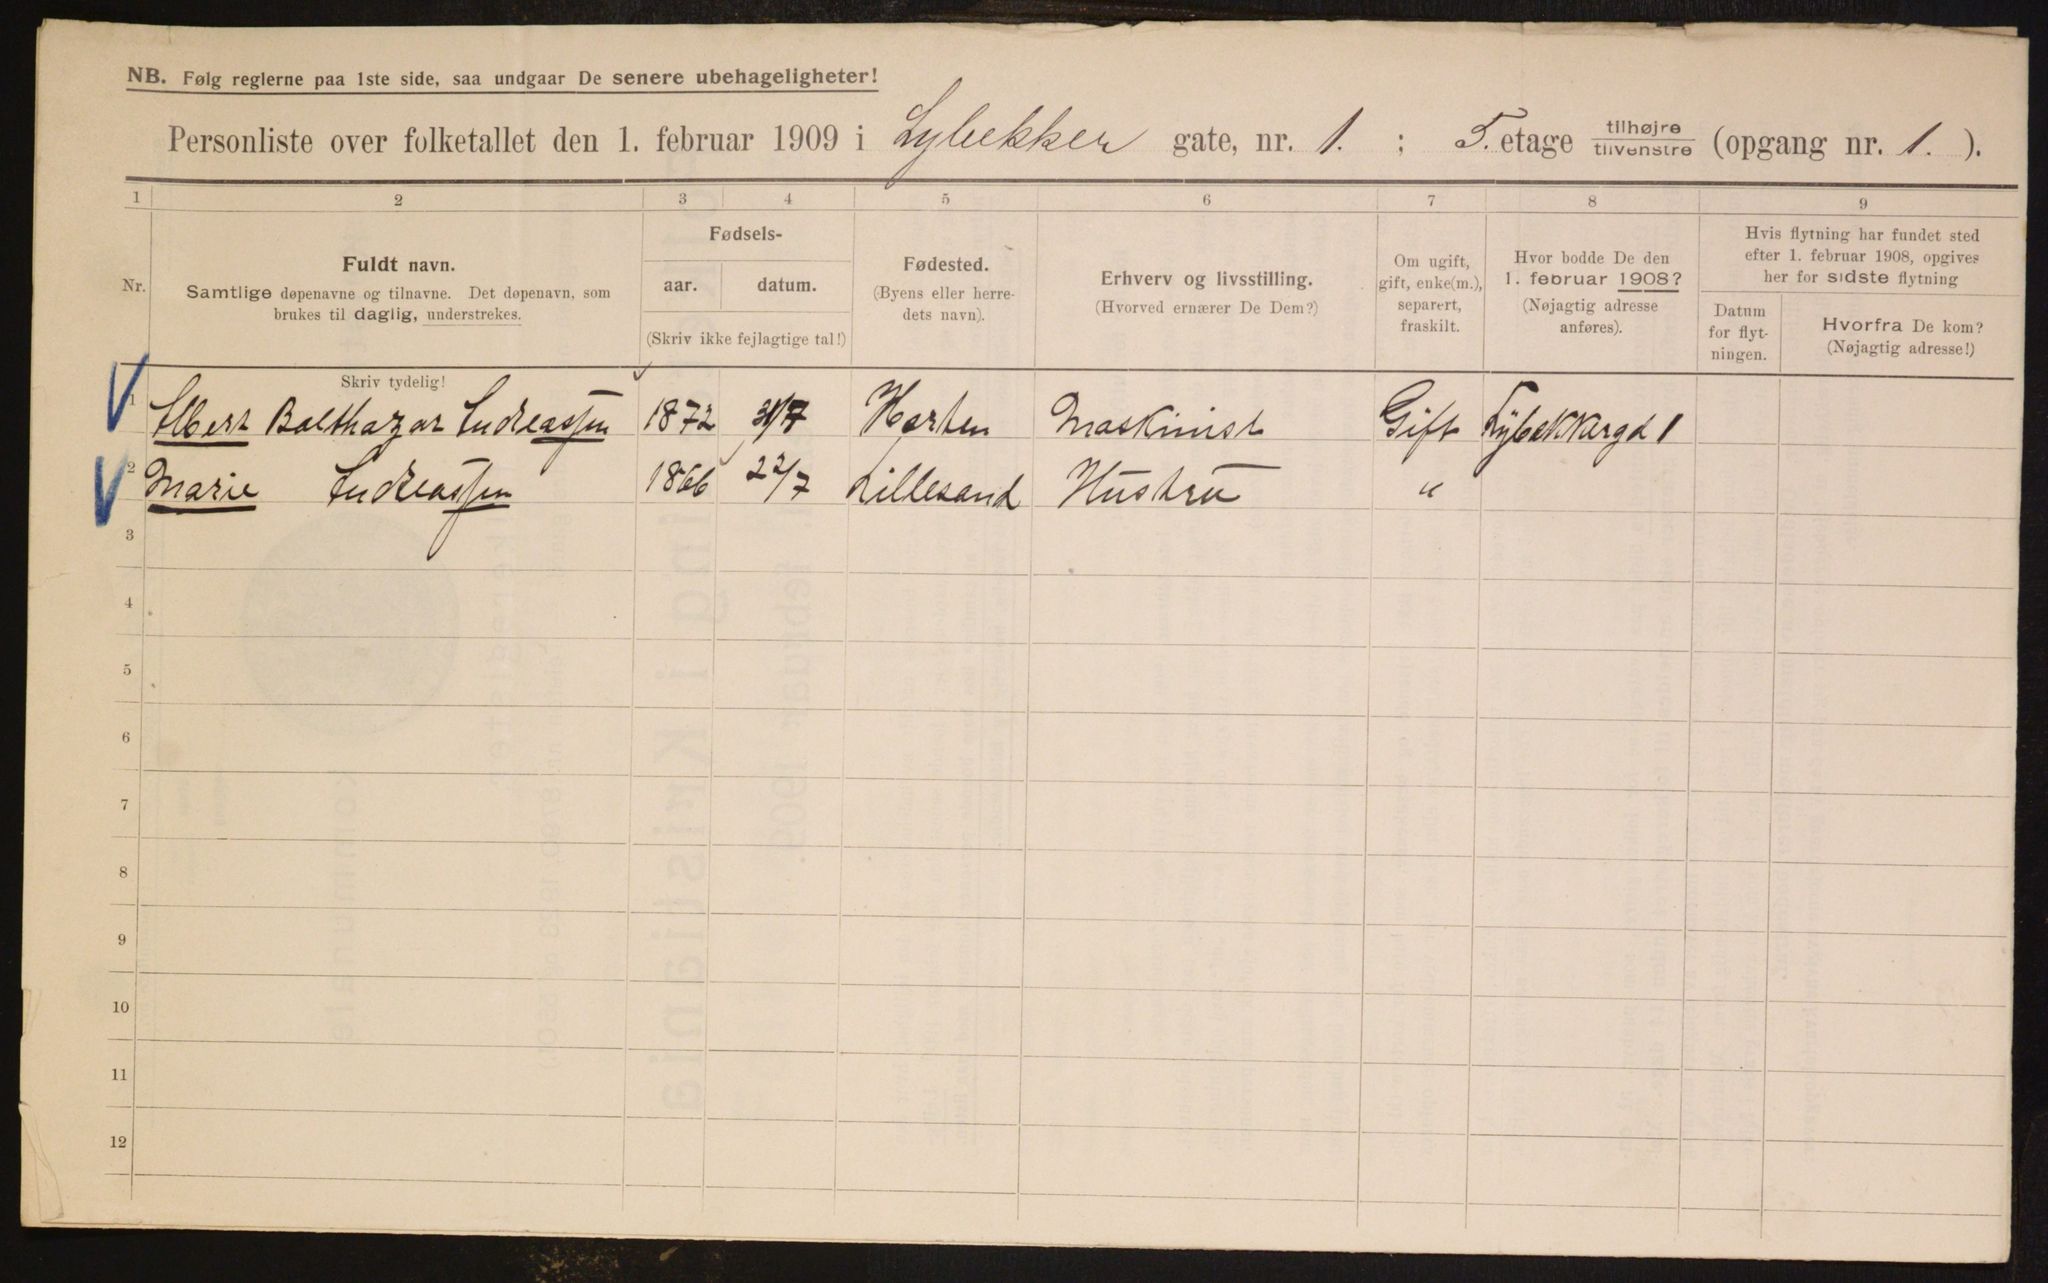 NB. Følg reglerne paa 1ste side, saa undgaar De senere ubehageligheter!
Personliste over folketallet den 1. februar 1909 i Lybekker gate, nr. 1. ; 5. etage tilhøjre tilvenstre (opgang nr. 1. ).
1 2 3 4 5 6 7 8 9
Nr.
Fuldt navn.
Samtlige døpenavne og tilnavne. Det døpenavn, som
brukes til daglig, understrekes.
Skriv tydelig!
Fødsels-
aar. datum.
(Skriv ikke fejlagtige tal!)
Fødested.
(Byens eller herre-
dets navn).
Erhverv og livsstilling.
(Hvorved ernærer De Dem?)
Om ugift,
gift, enke(m.),
separert,
fraskilt.
Hvor bodde De den
1. februar 1908?
(Nøjagtig adresse
anføres).
Hvis flytning har fundet sted
efter 1. februar 1908, opgives
her for sidste flytning
Datum
for flyt-
ningen.
Hvorfra De kom?
(Nøjagtig adresse!)
1 Albert Balthazar Andreassen 1872 31/7 Horten Maskinist Gift Lybekkergd 1
2 Marie Andreassen 1866 22/7 Lillesand Hustru "
3
4
5
6
7
8
9
10
11
12